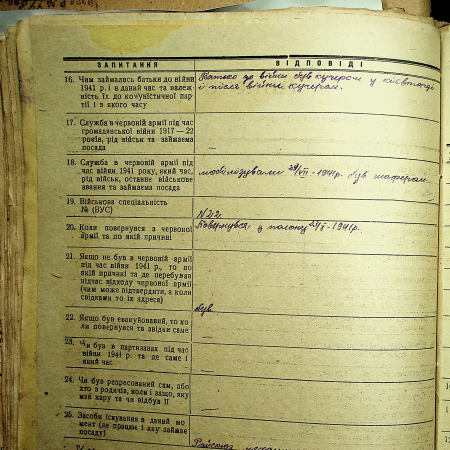 ЗАПИТАННЯ
ВІДПОВІДІ
16. Чим займались батьки до війни
1941 р. і в даний час та належ-
ність їх до комуністичної пар-
тії і з якого часу
Батько до війни був кучером у
й після війни кучером.
17. Служба в червоній армії під час
громадянської війни 1917—22
років, рід військ та займаєма
посада
—
18. Служба в червоній армії під
час війни 1941 року, який час,
рід військ, останнє військове
звання та займаєма посада
мобілізували 29/VII-1941р. був шофером
19. Військова спеціальність
№ (ВУС)
N22.
20. Коли повернувся з червоної
армії та по якій причині
Повернувся з полону /X-1941р.
21. Якщо не був в червоній армії
під час війни 1941 р., то по
якій причині та де перебував
підчас відходу червоної армії
(чим може підтвердити, а коли
свідками то їх адреса)
був.
22. Якщо був евакуйований, то ко-
ли повернувся та звідки саме
—
23. Чи був в партизанах під час
війни 1941 р. та де саме і
який час
—
24. Чи був репресований сам, або
хто з родичів, коли і защо, яку
мав кару та чи відбув її
—
25. Засоби існування в даний мо-
мент (де працює і яку займає
посаду)